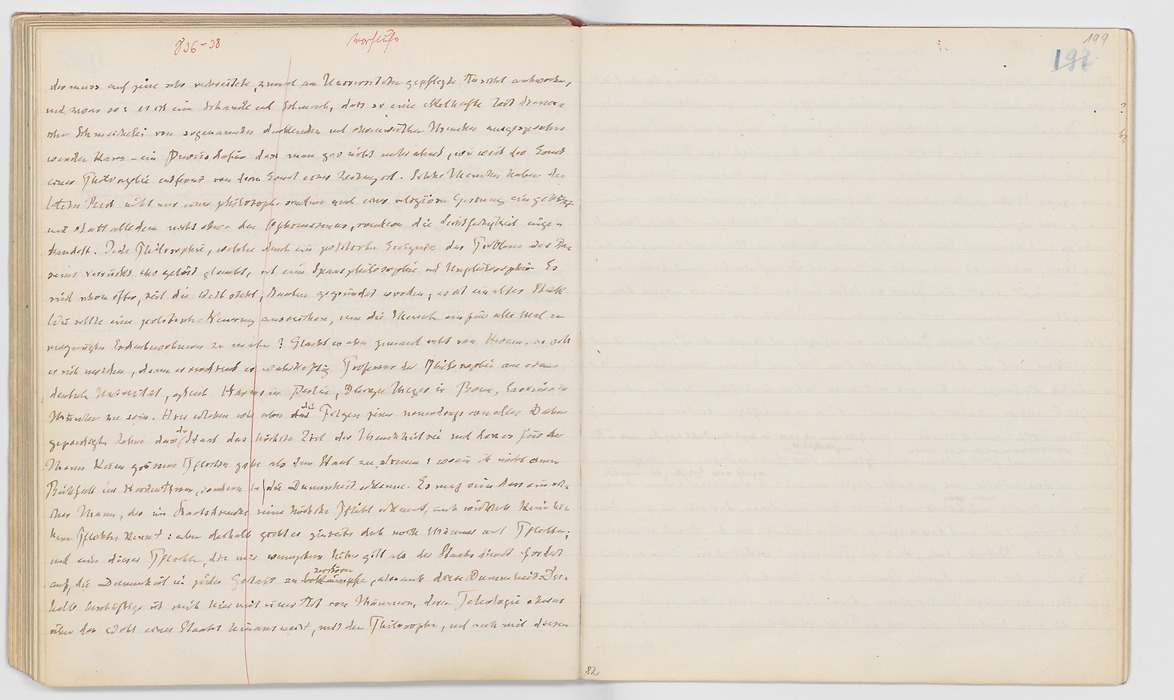 836-38 Vorstufe
199
198
der muss auf jene sehr verbreitete, zumal an Universitäten gepflegte Ansicht antworten,
und zwar so: es ist eine Schande und Schmach, dass er eine ekelhafte
oder Schmeichelei von sogenannten denkenden und ehrenwerthen Menschen ausgesprochen
werden kann – ein Beweis dafür dass man gar nicht mehr ahnt, wie weit der Ernst
einer Philosophie entfernt von dem Ernst einer Zeitung ist. Solche Menschen haben den
letzten Rest nicht nur einer philosophischen sondern auch einer religiösen Gesinnung eingebüsst
und statt alledem nicht etwa den Optimismus, sondern die
handelt. Jede Philosophie, welche durch ein politisches Ereigniss das Problem des Da-
seins verrückt oder gelöst glaubt, ist eine Spassphilosophie und Unphilosophie. Es
sind schon öfter, seit die Welt steht, Staaten gegründet worden; es ist ein altes Stück.
Wie sollte eine politische Neuerung ausreichen, um die Menschen ein für alle Mal zu
vergnügten Erdenbewohnern zu machen? Glaubt es aber jemand recht von Herzen, so soll
er sich melden, denn er verdient es wahrhaftig Professor der Philosophie an einer
deutschen Universität, gleich Harms in Berlin, Jürgen Meyer in Bonn, Carrière in
München zu sein. Hier erleben wir aber die Folgen jener neuerdings von allen Dächern
gepredigten Lehre dass der Staat das höchste Ziel der Menschheit sei und dass es für den
Mann keine grösseren Pflichten gebe als dem Staat zu dienen: worin ich nicht einen
Rückfall ins Heidenthum, sondern in die Dummheit erkenne. Es mag sein dass ein sol-
cher Mann, der im Staatsdienste seine höchste Pflicht erkennt, auch wirklich keine höhe-
ren Pflichten kennt: aber deshalb giebt es jenseits doch noch Männer und Pflichten;
und eine dieser Pflichten, die mir wenigstens höher gilt als der Staatsdienst fordert
auf, die Dummheit in jeder Gestalt zu bekämpfen zerstören, also auch diese Dummheit. Des-
halb beschäftige ich mich hier mit einer Art von Männern, deren Teleologie etwas
über das Wohl eines Staates hinausweist, mit den Philosophen, und auch mit diesen
82